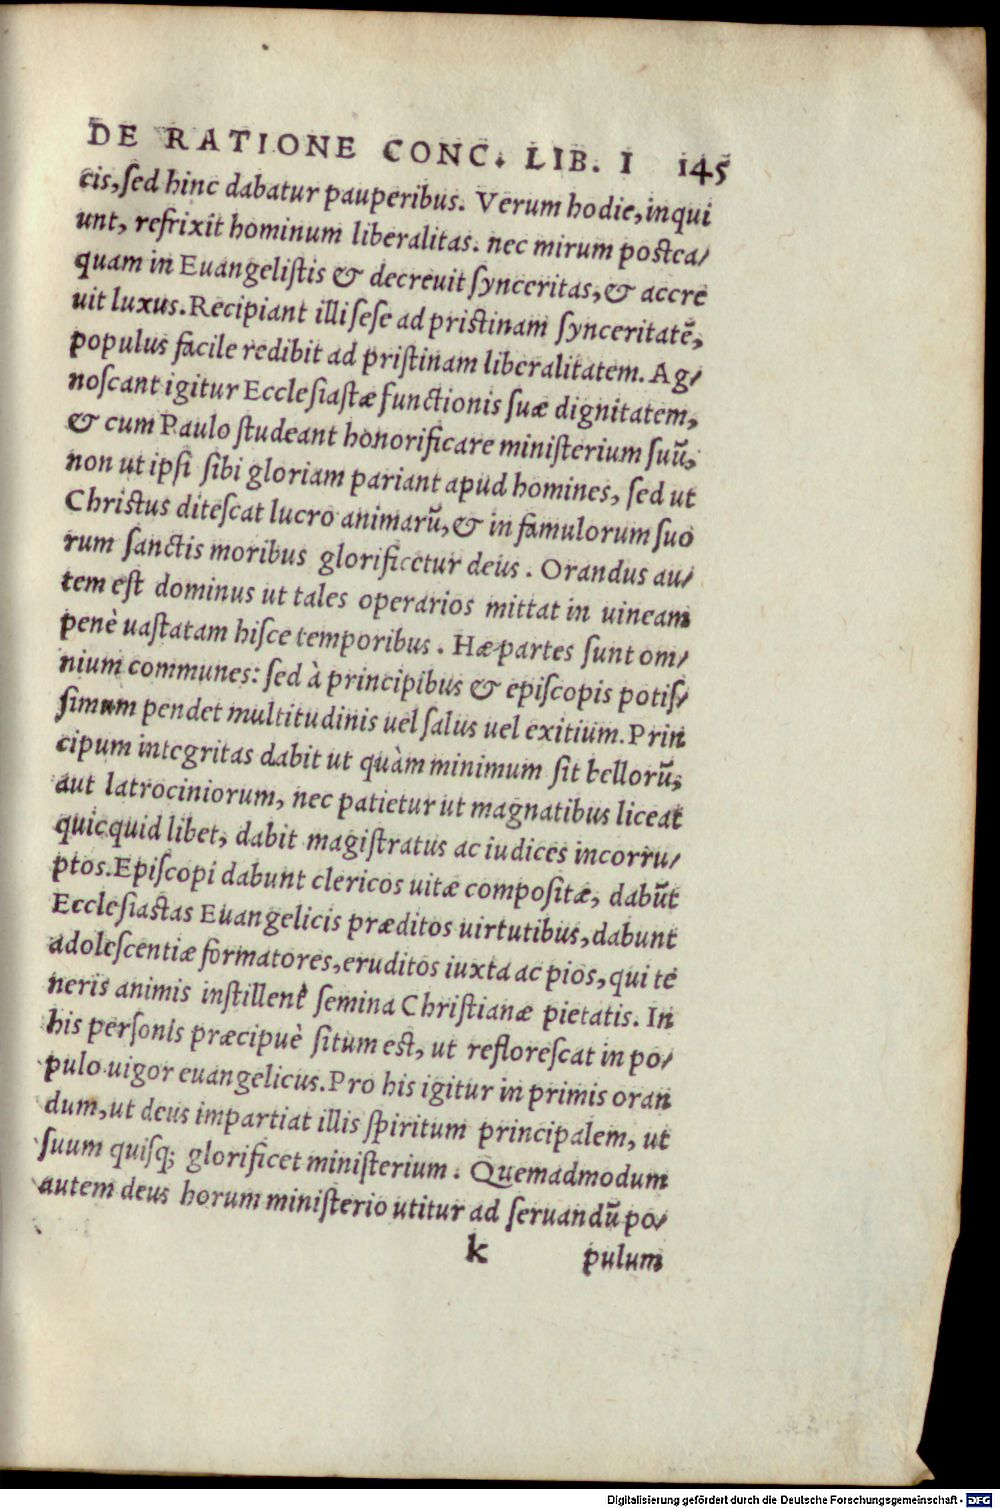 DE RATIONE CONC. LIB. I 145
cis, ſed hinc dabatur pauperibus. Verum hodie, inqui
unt, refrixit hominum liberalitas. nec mirum postea/
quam in Euangeliſtis & decreuit ſynceritas, & accre
uit luxus. Recipiant illi ſeſe ad pristinam ſynceritatē,
populus facile redibit ad priſtinam liberalitatem. Ag/
noſcant igitur Eccleſiaſtæ functionis ſuæ dignitatem,
& cum Paulo ſtudeant honorificare miniſterium ſuū,
non ut ipſi ſibi gloriam pariant apud homines, ſed ut
Christus diteſcat lucro animarū, & in famulorum ſuo
rum ſanctis moribus glorificetur deus. Orandus au/
tem eſt dominus ut tales operarios mittat in uineam
penè uaſtatam hiſce temporibus. Hæ partes ſunt om/
nium communes: ſed à principibus & epiſcopis potiſ/
ſimum pendet multitudinis uel ſalus uel exitium. Prin
cipum integritas dabit ut quàm minimum ſit bellorū,
aut latrociniorum, nec patietur ut magnatibus liceat
quicquid libet, dabit magiſtratus ac iudices incorru/
ptos. Epiſcopi dabunt clericos uitæ compoſitæ, dabūt
Eccleſiastas Euangelicis præditos uirtutibus, dabunt
adoleſcentiæ formatores, eruditos iuxta ac pios, qui te
neris animis inſtillent ſemina Chriſtianæ pietatis. In
his perſonis præcipuè ſitum eſt, ut refloreſcat in po/
pulo uigor euangelicus. Pro his igitur in primis oran
dum, ut deus impartiat illis ſpiritum principalem, ut
ſuum quiſq; glorificet miniſterium. Quemadmodum
autem deus horum miniſterio utitur ad ſeruandū po/
k pulum
Digitalisierung gefördert durch die Deutsche Forschungsgemeinschaft - DFG